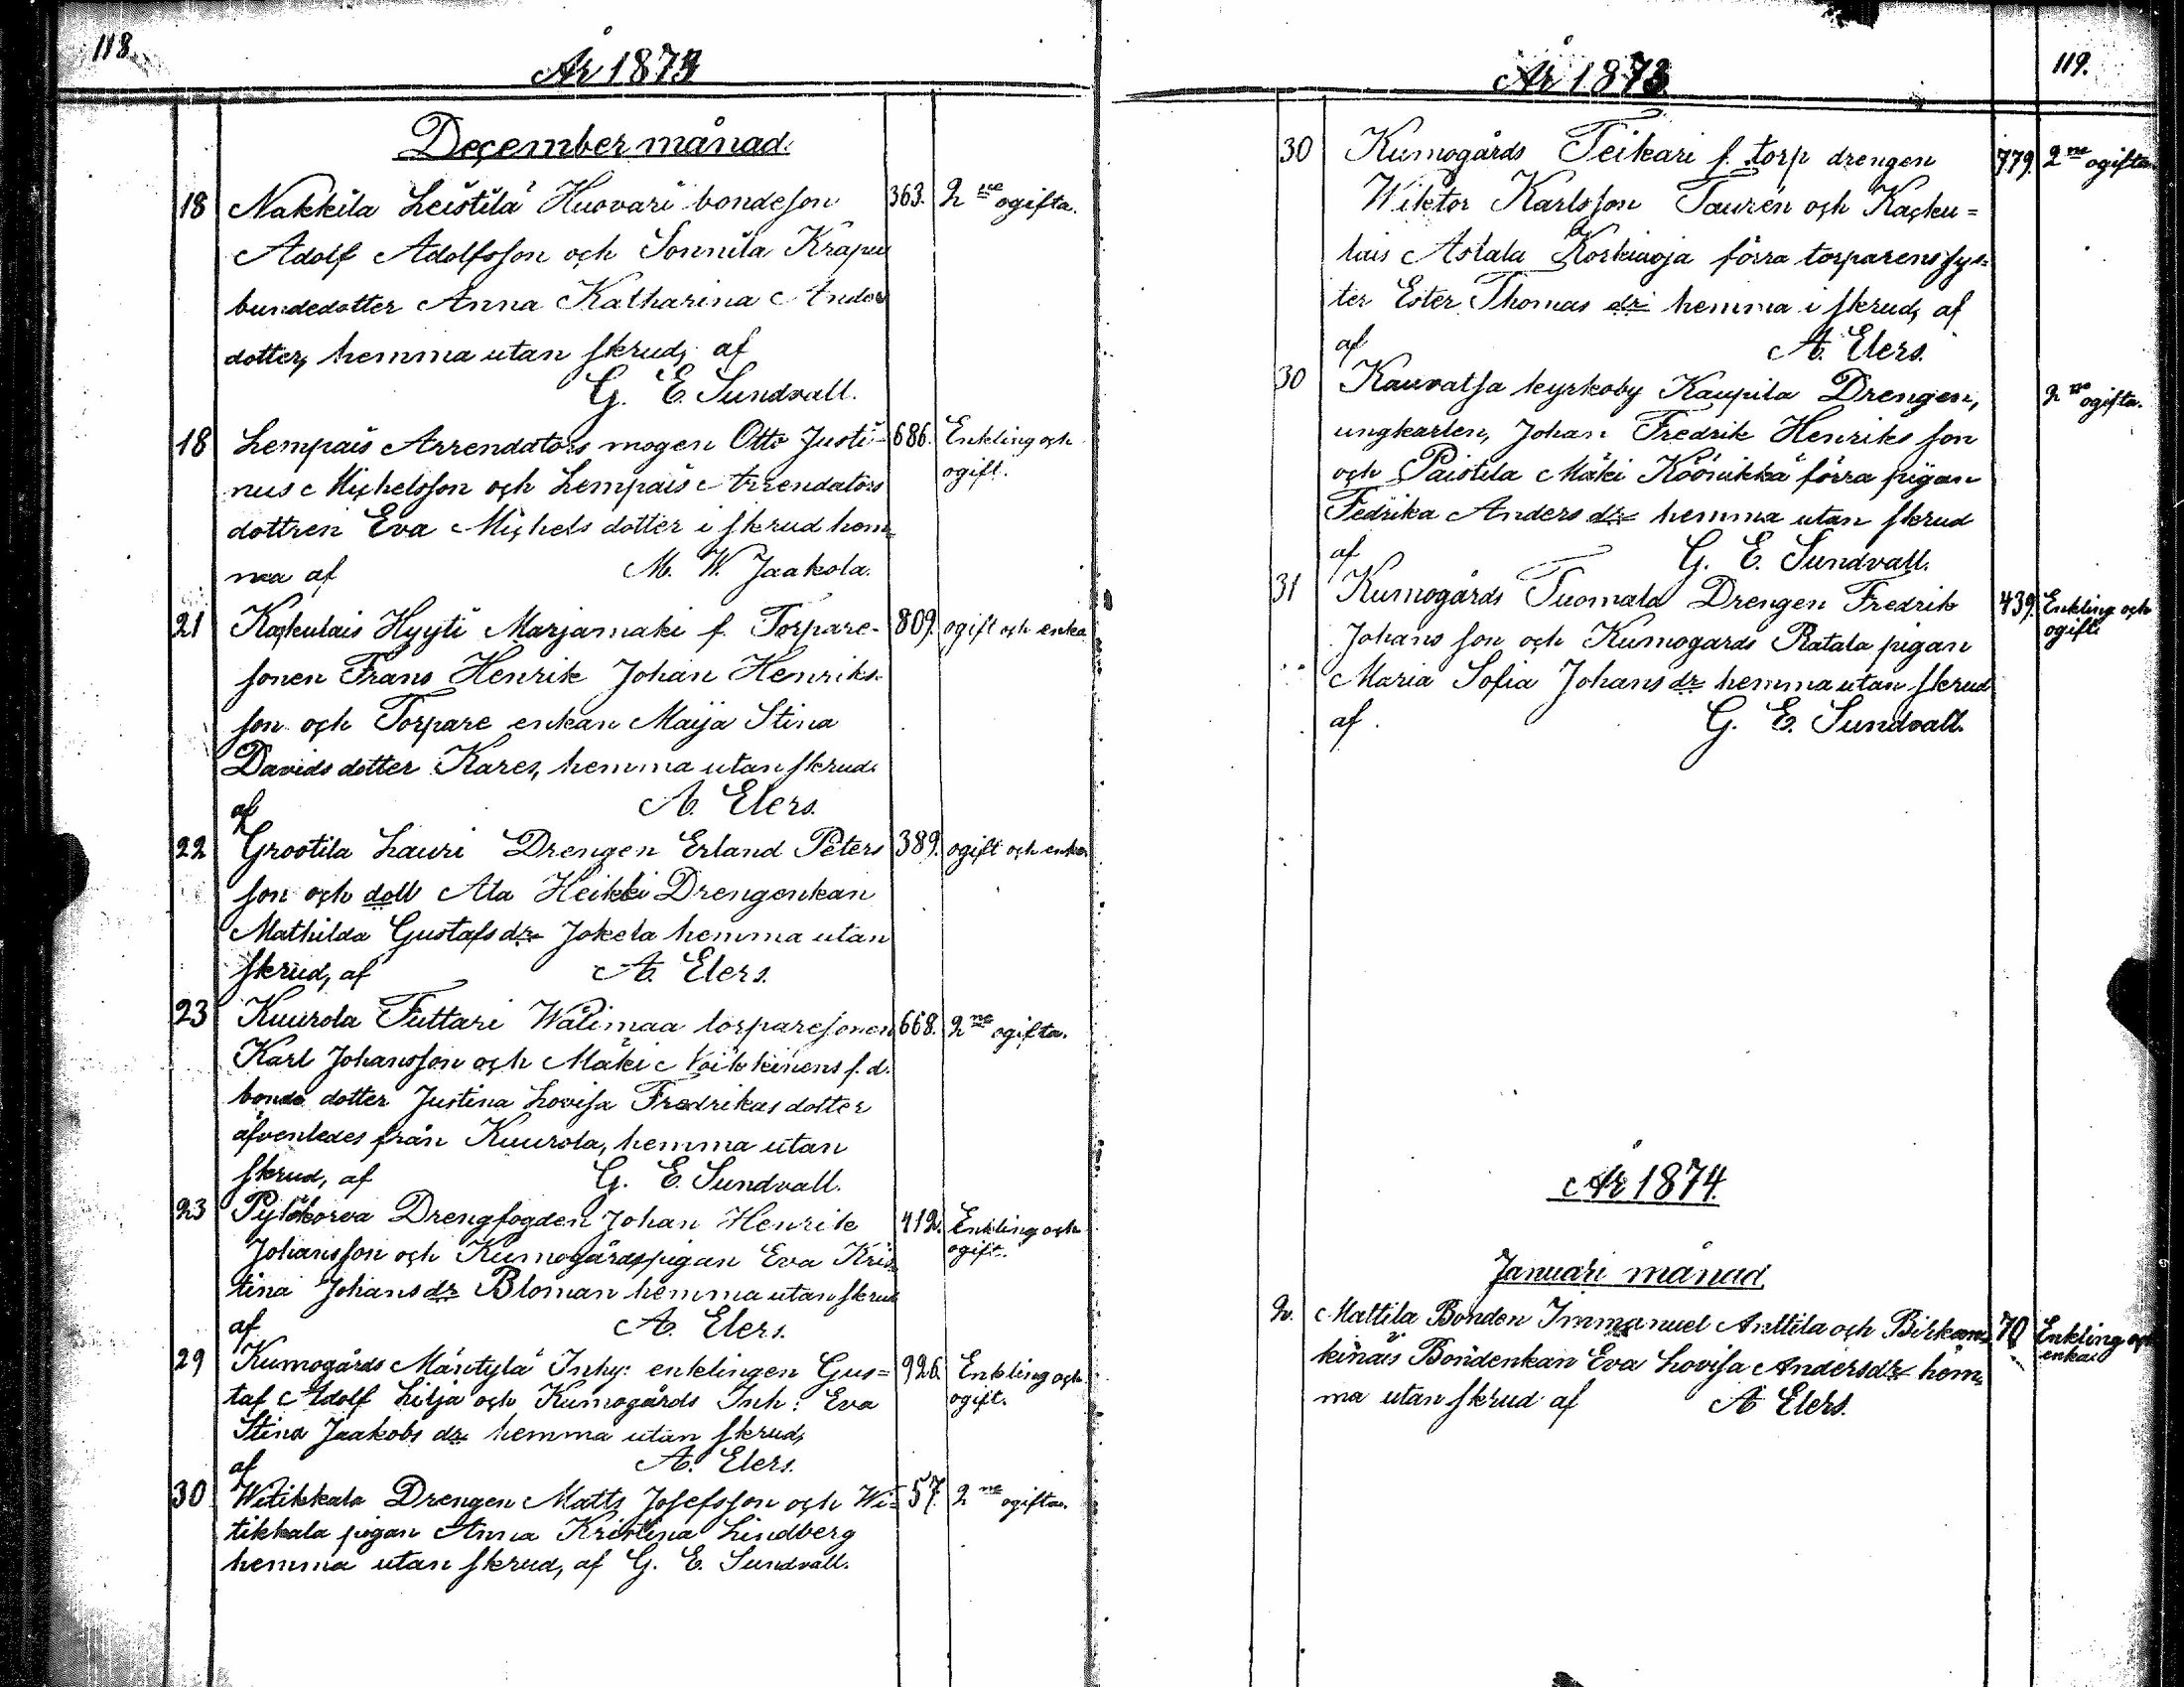 118.
År 1873
December månad.
18 Nakkila Leistilä Huovari bondeson 363. 2ne ogifta.
Adolf Adolfsson och Sonnila Krapu
bondedotter Anna Katharina Anders
dotter, hemma utan skrud, af
G. E. Sundvall.
18 Lempais Arrendators mågen Otto Justi- 686. Enkling och
nus Michelsson och Lempais Arrendators ogift.
dottren Eva Michels dotter i skrud hem-
ma af M. W. Jaakola.
21 Kaskulais Hyyti Marjamaki f. Torpare- 809. ogift och enka
sonen Frans Henrik Johan Henriks-
son och Torpare enkan Maija Stina
Davids dotter Kares, hemma utan skrud.
af A. Elers.
22 Grootila Lauri Drengen Erland Peters 389. ogift och enka
son och doll Ala Heikki Drengenkan
Mathilda Gustafs dr Jokela hemma utan
skrud, af A. Elers.
23 Kuurola Tuttari Wälimaa torparesonen 668. 2ne ogifta.
Karl Johansson och Mäki Voikkinens f. d.
bonde dotter Justina Lovisa Fredrikas dotter
äfvenledes från Kuurola, hemma utan
skrud, af G. E. Sundvall.
23 Pylökorva Drengfogden Johan Henrik 412. Enkling och
Johansson och Kumogårdspigan Eva Kris- ogift.
tina Johans dr Bloman hemma utan skrud
af A. Elers.
29 Kumogårds Mäntylä Inhy: enklingen Gus= 926. Enkling och
taf Adolf Lilja och Kumogårds Inh: Eva ogift.
Stina Jaakobs dr hemma utan skrud,
af A. Elers.
30 Witikkala Drengen Matts Josefsson och Wi= 57. 2ne ogifta.
tikkala pigan Anna Kristina Lindberg
hemma utan skrud, af G. E. Sundvall.
119.
År 1873.
30 Kumogårds Teikari f. torp drengen 779. 2ne ogifta
Wiktor Karlsson Taurén och Kasku=
lais Astala Korkiaoja förra torparens sys=
ter Ester Thomas dr hemma i skrud, af
af A. Elers.
30 Kauvatsa kyrkoby Kaupila Drengen, 2ne ogifta.
ungkarlen, Johan Fredrik Henriks son
och Paistila Mäki Köönikkä förra pigan
Fedrika Anders dr hemma utan skrud
af G. E. Sundvall.
31 Kumogårds Tuomala Drengen Fredrik 439. Enkling och
Johans son och Kumogards Ratala pigan ogift.
Maria Sofia Johans dr hemma utan skrud
af G. E. Sundvall.
År 1874.
Januari månad.
2. Mattila Bonden Immanuel Anttila och Birkan= 70 Enkling och
kinais Bondenkan Eva Lovisa Anders dr hem= enka
ma utan skrud af A Elers.